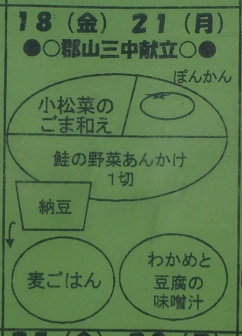 18（金） 21（月）
●○郡山三中献立○●
ぽんかん
小松菜の
ごま和え
鮭の野菜あんかけ
1切
納豆
麦ごはん
わかめと
豆腐の
味噌汁